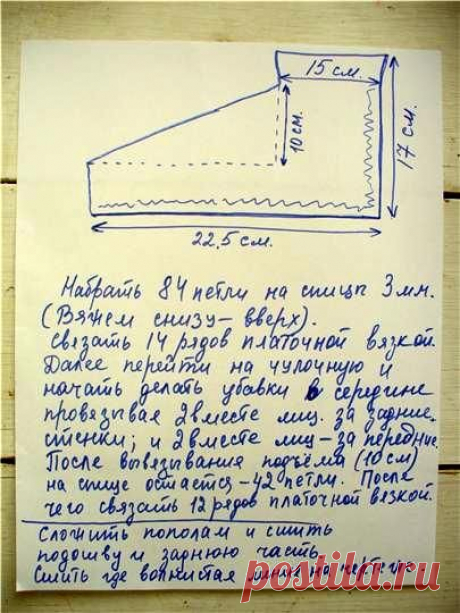 15 см.
10 см.
17 см.
22,5 см.
Набрать 84 петли на спицы 3 мм.
(Вяжем снизу - вверх).
Связать 14 рядов платочной вязкой.
Далее перейти на чулочную и
начать делать убавки в середине
провязывая 2 вместе лиц. за задние
стенки; и 2 вместе лиц - за передние.
После вывязывания подъёма (10 см)
на спице остается - 42 петли. После
чего связать 12 рядов платочной вязкой.
Сложить пополам и сшить
подошву и заднюю часть
Сшить где волнистая линия на чертеже
postila.ru